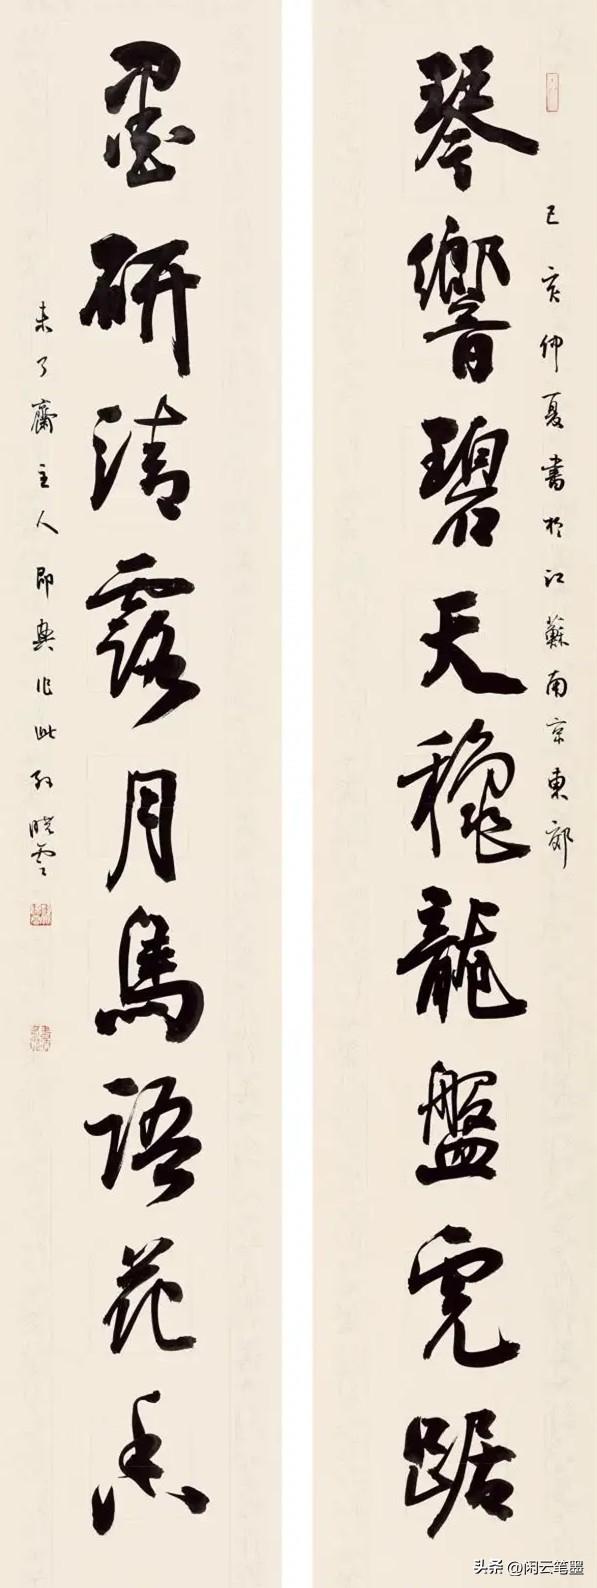 己亥仲夏書於江蘇南京東郊
琴響碧天穐龍盤虎踞
墨研清露月鳥語花香
未了齋主人即興作此孫曉雲
头条 @闲云笔墨